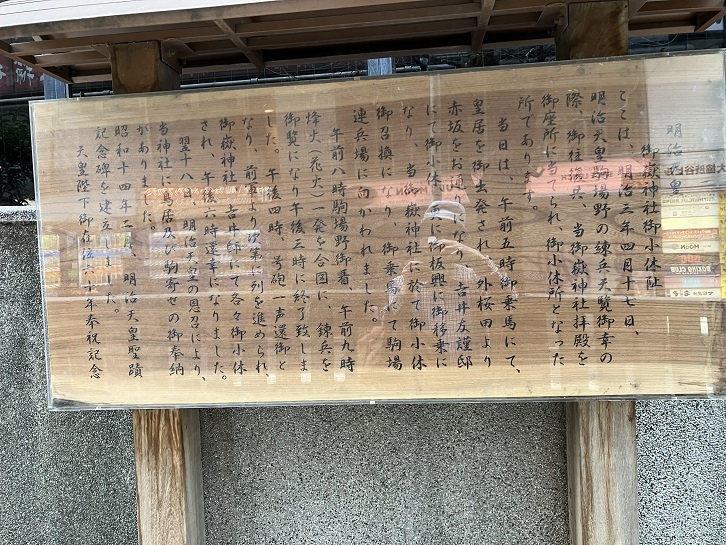 明治天皇
御嶽神社御小休阯
ここは、明治三年四月十七日、
明治天皇駒場野の練兵天覧御幸の
際、御往復共、当御嶽神社拝殿を
御座所に当てられ、御小休所となった
所であります。
当日は、午前五時御乗馬にて、
皇居を御出発され、外桜田より
赤坂をお通りになり、吉井友謹邸
にて御小休、更に御板輿に御移乗に
なり、当御嶽神社に於て御小休
御召換になり、御乗馬にて駒場
連兵場に向かわれました。
午前八時駒場野御着、午前九時
烽火(花火)一発を合図に、錬兵を
御覧になり午後三時に終了致しま
した。午後四時、号砲一声還御と
なり、前軍より次第に列を進められ、
御嶽神社、吉井邸にて各々御小休
され、午後六時還幸になりました。
翌十八日、明治天皇の恩召により、
当神社に鳥居及び駒寄せの御奉納
がありました。
昭和十四年二月、明治天皇聖蹟
記念碑を建立しました。
天皇陛下御在位六十年奉祝記念
BOXING CLUB